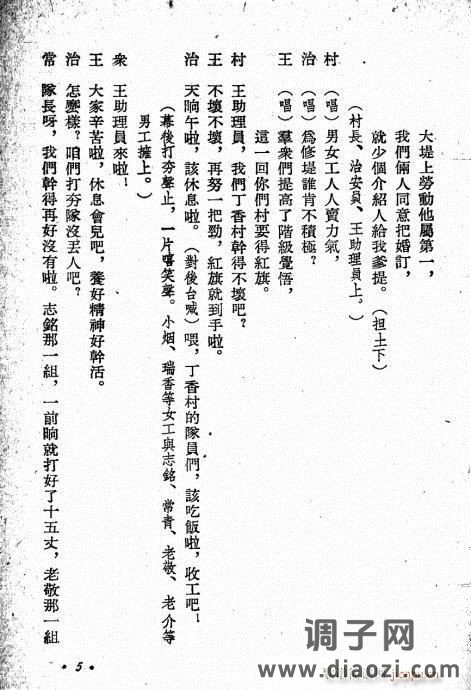 大堤上勞動他屬第一，
我們倆人同意把婚訂，
就少個介紹人給我爹提。（担土下）
（村長、治安員、王助理員上。）
村 （唱）男女工人人賣力氣，
治 （唱）爲修堤誰肯不積極？
王 （唱）羣衆們提高了階級覺悟，
這一回你們村要得紅旗。
村 王助理員，我們丁香村幹得不壞吧？
王 不壞不壞，再努一把勁，紅旗就到手啦。
治 天晌午啦，該休息啦。（對後台喊）喂，丁香村的隊員們，該吃飯啦，收工吧！
（幕後打夯聲止，一片嘻笑聲。小烟、瑞香等女工與志銘、常青、老敬、老介等
男工擁上。）
衆 王助理員來啦！
王 大家辛苦啦，休息會兒吧，養好精神好幹活。
治 怎麽樣？咱們打夯隊沒丟人吧？
常 隊長呀，我們幹得再好沒有啦。志銘那一組，一前晌就打好了十五丈，老敬那一組
• 5 •
调子网
www.diaozi.com